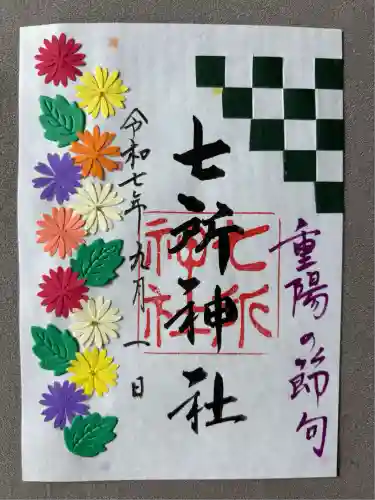 重陽の節句
七所神社
七所
神社
令和七年九月一日